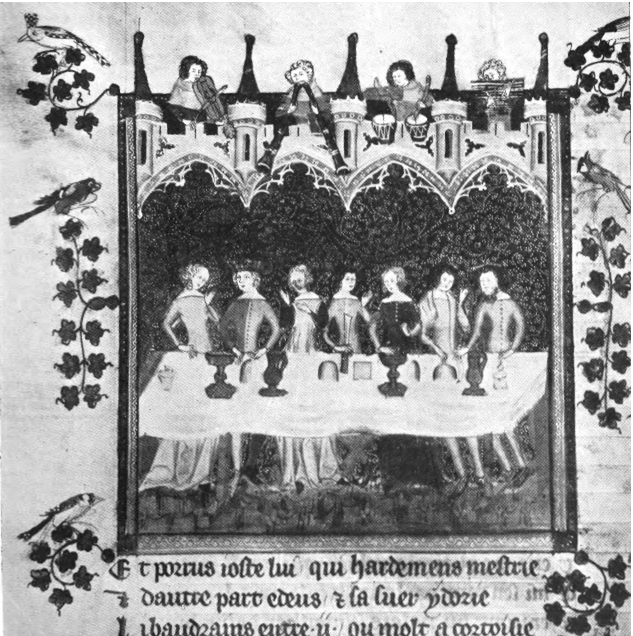 Et porrus ioste lui qui hardemens mestrie
⁊ dautre part edeus ⁊ sa suer ydorie
Libaudrains entre .ii. qu molt a cortoisie